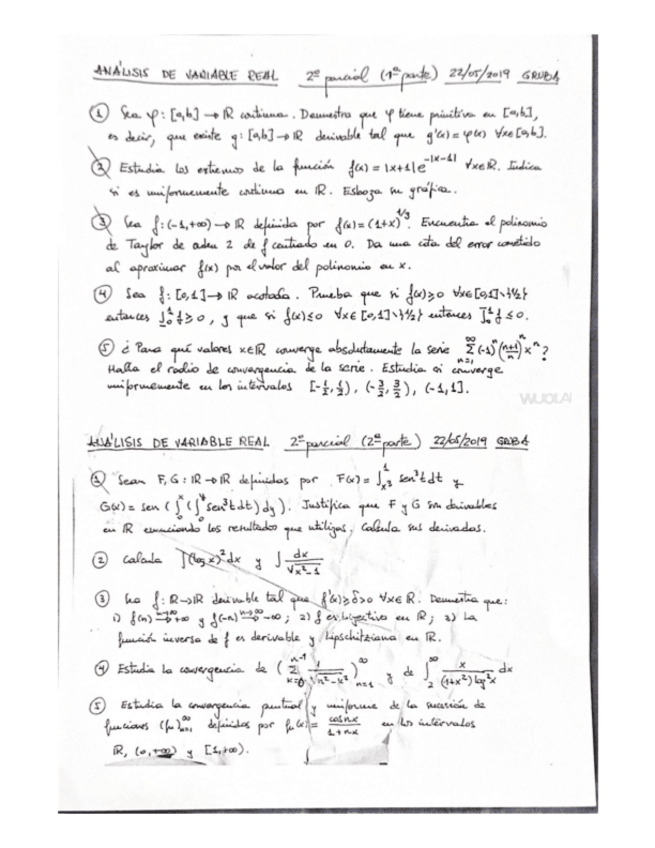 ANÁLISIS DE VARIABLE REAL 2º parcial (1ª parte) 22/05/2019 GRUPO A
① Sea φ: [a,b] → ℝ continua. Demuestra que φ tiene primitiva en [a,b],
es decir, que existe g: [a,b] → ℝ derivable tal que g'(x) = φ(x) ∀x∈[a,b].
② Estudia los extremos de la función f(x) = |x+1|e^{-|x-1|} ∀x∈ℝ. Indica
si es uniformemente continua en ℝ. Esboza su gráfica.
③ Sea f: (-1,+∞) → ℝ definida por f(x) = (1+x)^{1/3}. Encuentra el polinomio
de Taylor de orden 2 de f centrado en 0. Da una cota del error cometido
al aproximar f(x) por el valor del polinomio en x.
④ Sea f: [0,1] → ℝ acotada. Prueba que si f(x) ≥ 0 ∀x∈[0,1]\{½}
entonces ∫_0^1 f ≥ 0, y que si f(x) ≤ 0 ∀x∈[0,1]\{½} entonces ∫_0^1 f ≤ 0.
⑤ ¿Para qué valores x∈ℝ converge absolutamente la serie Σ_{n=1}^∞ (-1)^n ((n+1)/n)^n x^n?
Halla el radio de convergencia de la serie. Estudia si converge
uniformemente en los intervalos [-½, ½), (-3/2, 3/2), (-1,1].
WUOLAH
ANÁLISIS DE VARIABLE REAL 2º parcial (2ª parte) 22/05/2019 GRUPO A
① Sean F, G: ℝ → ℝ definidas por F(x) = ∫_{x^3}^1 sen³t dt y
G(x) = sen(∫_0^x (∫_0^y sen³t dt) dy). Justifica que F y G son derivables
en ℝ enunciando los resultados que utilizas. Calcula sus derivadas.
② Calcula ∫(log x)² dx y ∫ dx/√(x²-1)
③ Sea f: ℝ → ℝ derivable tal que f'(x) ≥ δ > 0 ∀x∈ℝ. Demuestra que:
1) f(n) →^{n→∞} +∞ y f(-n) →^{n→∞} -∞; 2) f es biyectiva en ℝ; 3) La
función inversa de f es derivable y Lipschitziana en ℝ.
④ Estudia la convergencia de (Σ_{k=0}^{n-1} 1/√(n²-k²))_{n=1}^∞ y de ∫_2^∞ x/((1+x²) log²x) dx
⑤ Estudia la convergencia puntual y uniforme de la sucesión de
funciones (f_n)_{n=1}^∞ definidas por f_n(x) = cos nx/(1+nx) en los intervalos
ℝ, (0,+∞) y [1,+∞).